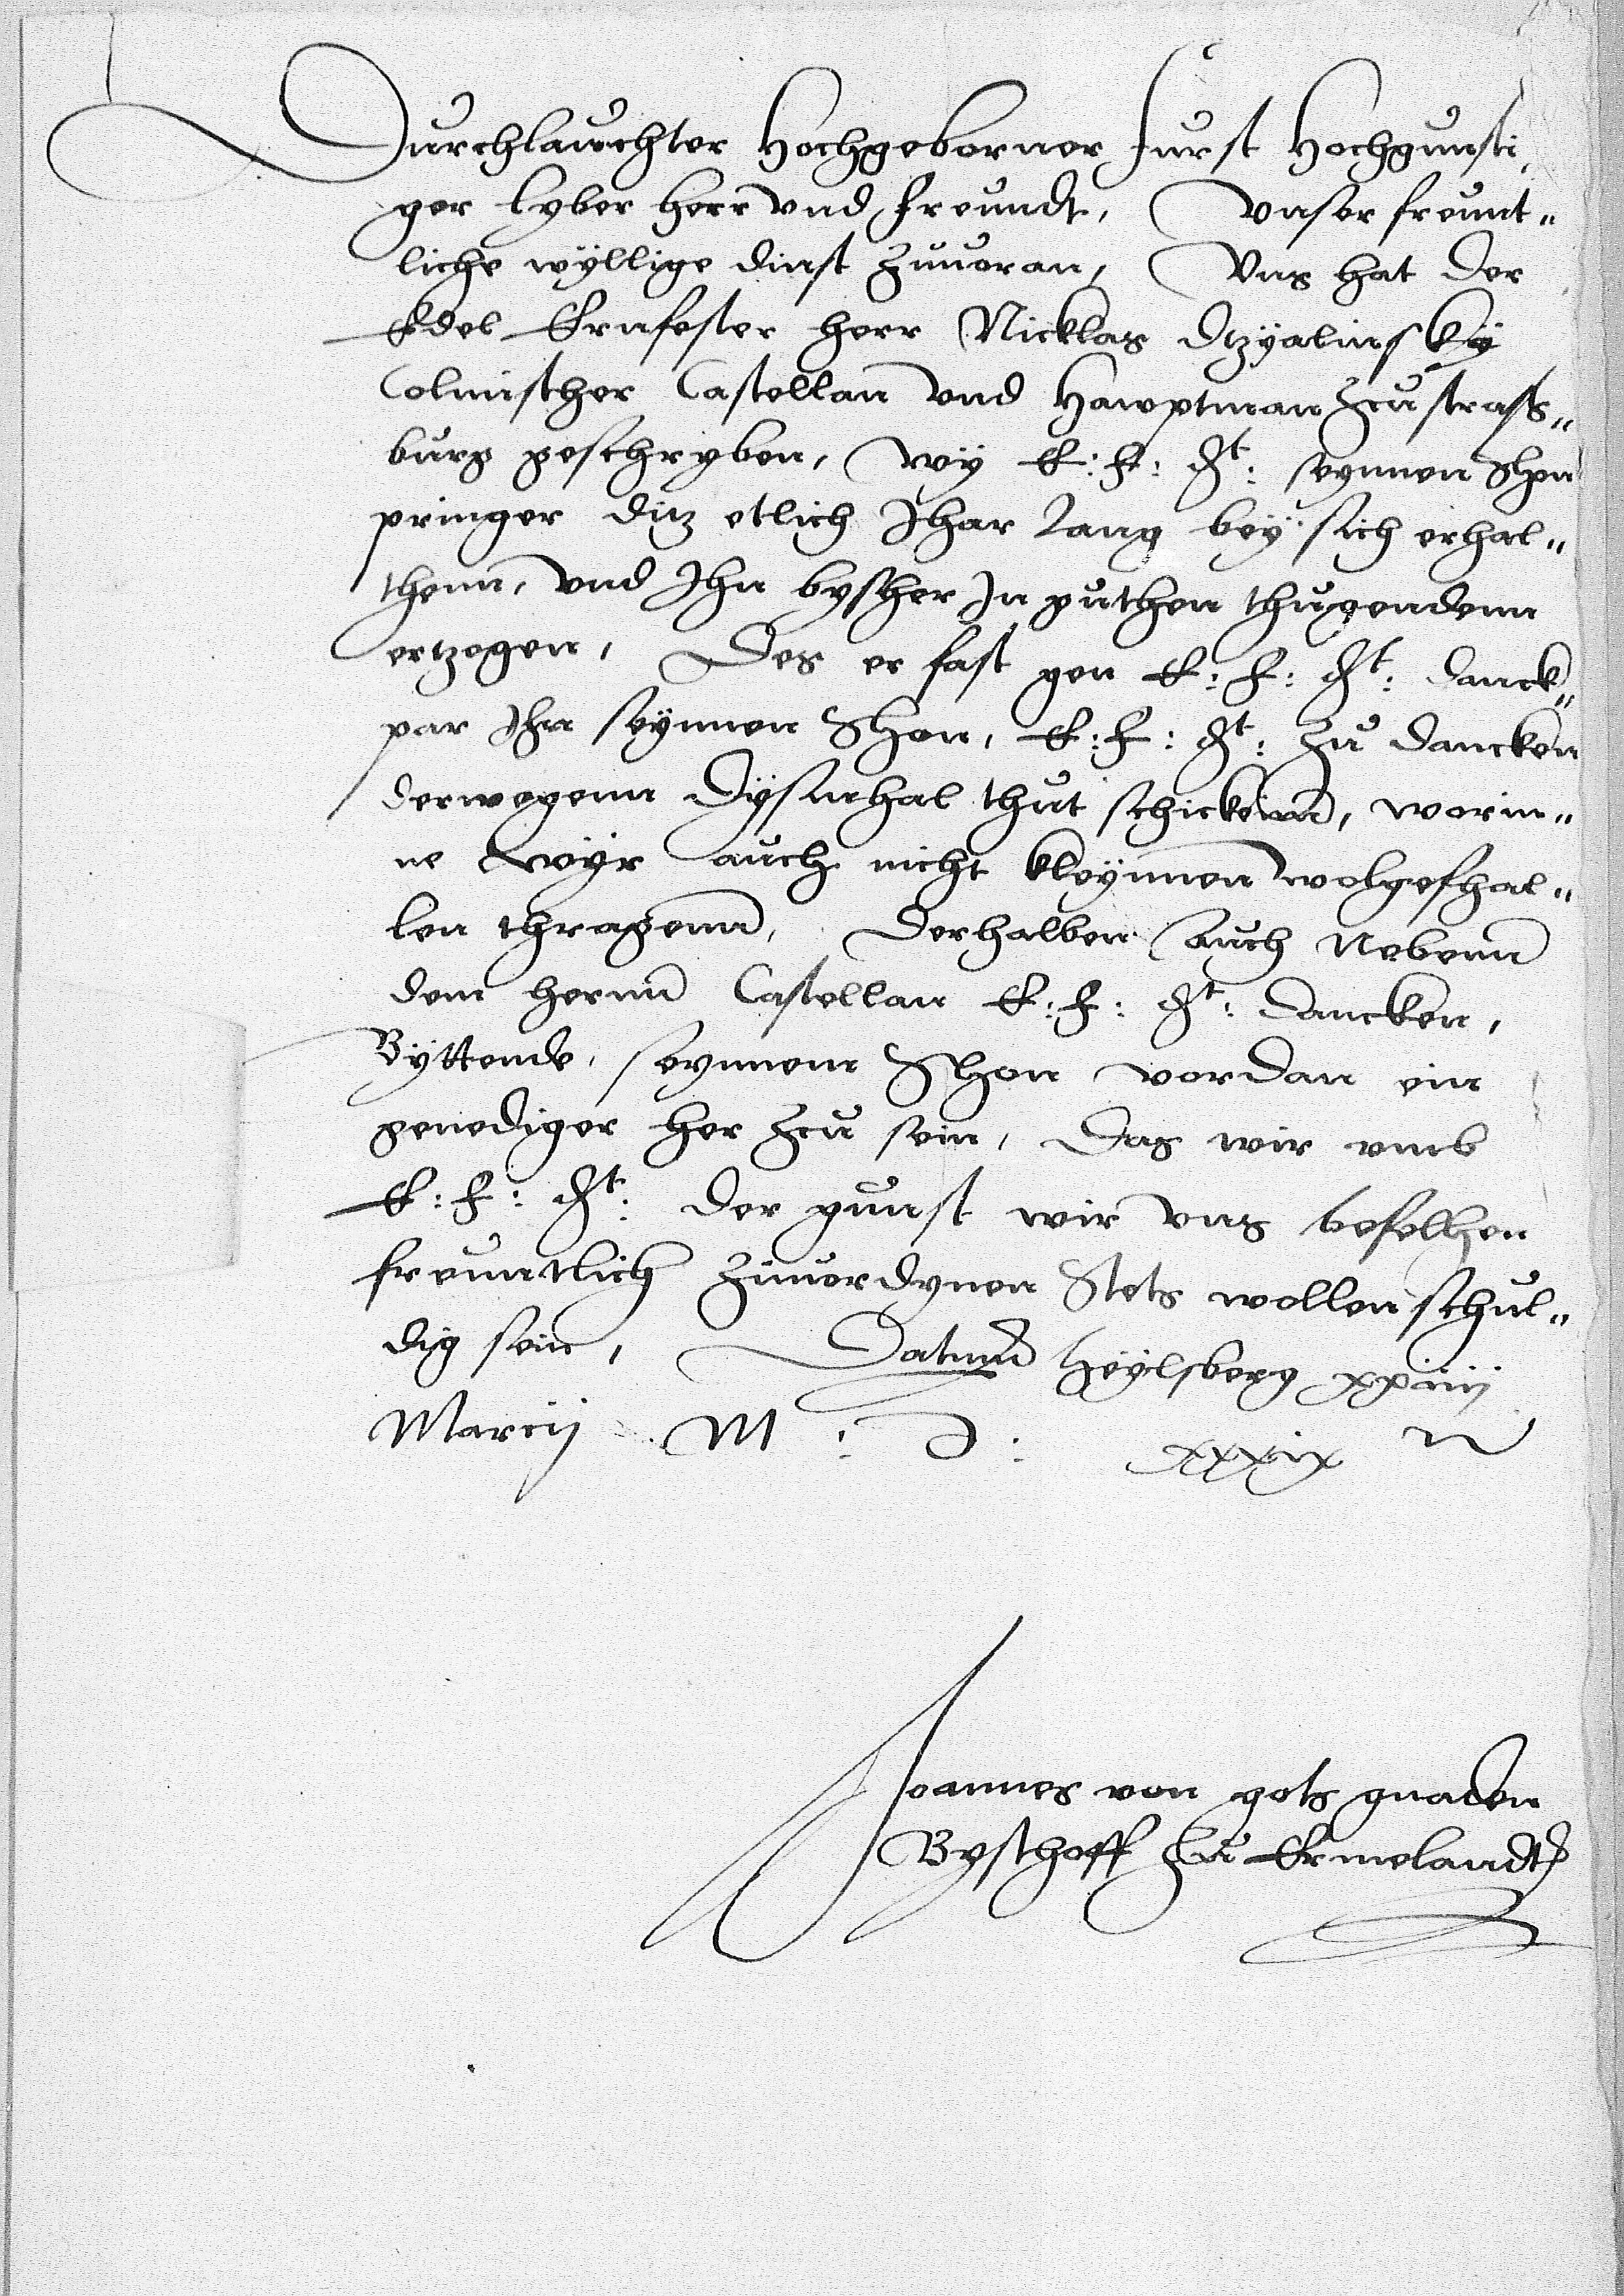 Durchlauchter Hochgeborner furst Hochgunsti,
ger lyber herr vnd freundt, Vnser freunt„
liche wyllige dinst zuuoran, Vns hat der
Edel Ernfester herr Nicklas dzyalinsky
Colmischer Castellan vnd Hawptman zcu stras„
burg geschryben, wy E: F: Dt: seynnen Shon
springer ditz etlich Jhar lang bey sich erhal„
thenn, vnd Ihn bysher In guthen thugendenn
ertzogen, Des er fast gen E: F: Dt: danck„
par Ihn seynnen Shon, E: F: Dt: zu dancken
derwegenn dysmhal thut schickenn, worin„
ne wyr auch nicht kleynnen wolgefhal„
len thragenn, Derhalben auch Nebenn
dem hernn Castellan E: F: Dt: dancken,
Byttende, seynnem Shon vordan ein
genediger her zcu sein, Das wir vmb
E: F: Dt: der gunst wir vns befelhen
freuntlich zuuordynen Stets wollen schul„
dig sein, Datum Heylsberg xxiiij
Marcij M : D : xxxix
Joannes von gots gnaden
Byschoff zu Ermelandt